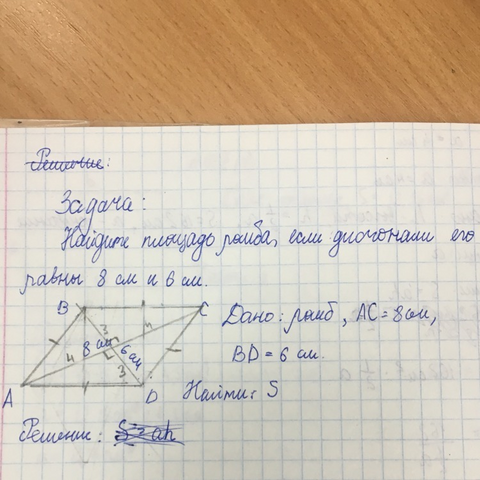 Решение:
Задача:
Найдите площадь ромба, если диогонали его
равны 8 см и 6 см.
B C
Дано: ромб, AC = 8 см,
3 4
8 см 6 см
4 3
BD = 6 см.
A D
Найти: S
Решение: S = ah